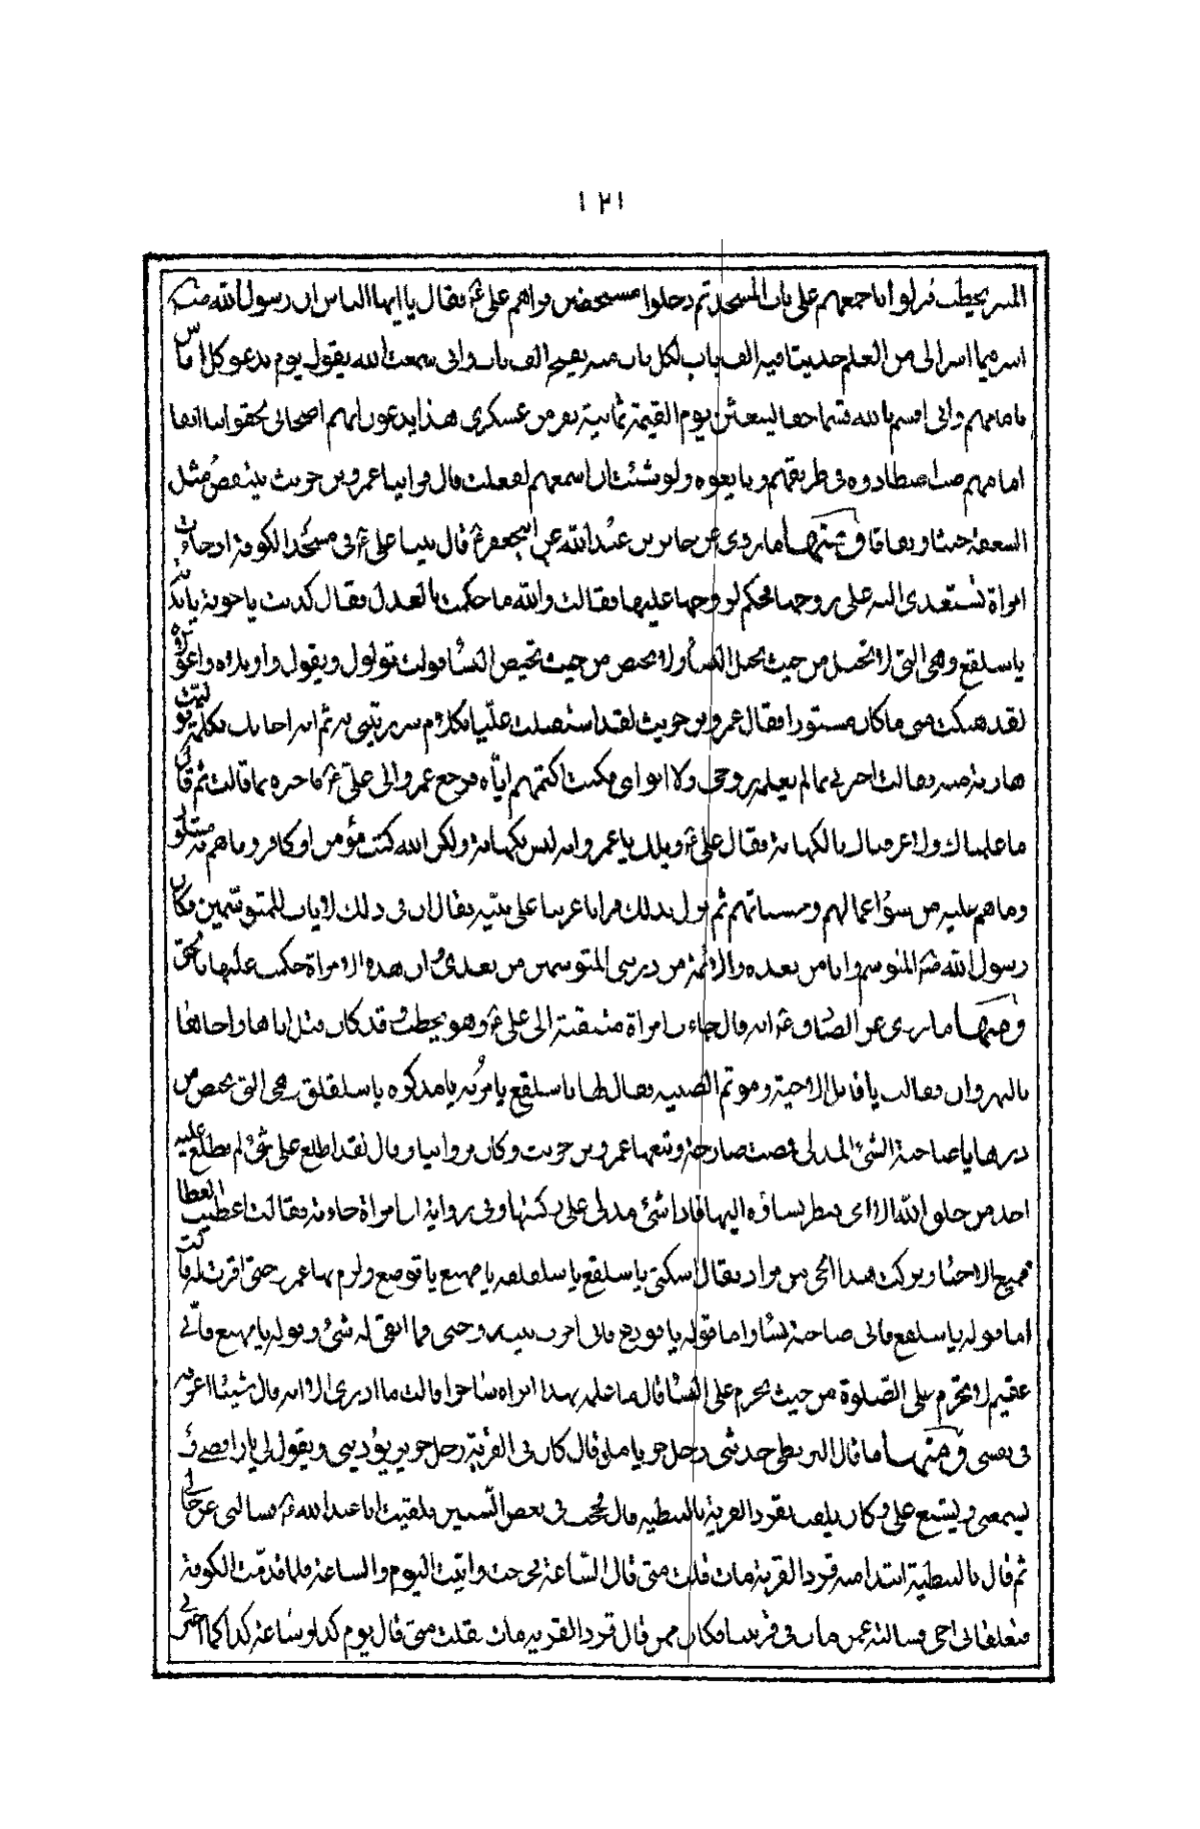 ١٢١
المنبر يخطب فنزلوا باجمعهم على باب المسجد ثم دخلوا مستحضرين وراهم على ع فقال يا ايها الناس ان رسول الله ص
اسر فيما اسر الى من العلم حديثا فيه الف باب لكل باب منه يفتح الف باب وانى سمعت الله يقول يوم ندعو كل اناس
بامامهم وانى اقسم بالله قسما حقا ليبعثن يوم القيمة ثمانية نفر من عسكرى هذا يدعون انهم اصحابى لحقوا بنا انفا
امامهم ضب اصطادوه فى طريقهم وبايعوه ولو شئت ان اسميهم لفعلت قال فراينا عمرو بن حريث ينتفض مثل
السعفة جبنا ونفاقا ومنها ما روى عن جابر بن عبد الله عن ابى جعفر ع قال بينا على ع فى مسجد الكوفة اذ جاءت
امراة تستعدى اليه على زوجها فحكم لزوجها عليها فقالت والله ما حكمت بالعدل فقال كذبت يا جرية يا بذية
يا سلقع وهى التى لا تحمل من حيث تحمل النساء ولا تحيض من حيث تحيض النساء فولت تولول ويقول واويلاه واعوراه
لقد هتكت منى ما كان مستورا فقال عمرو بن حريث لقد استقبلت عليا بكلام سررتينى به ثم انه اجابك بكلمة فوليت
هاربة منه فقالت اخبرنى بما لم يعلمه زوجى ولا ابواى فكنت اكتمهم اياه فرجع عمرو الى على ع فاخبره بما قالت ثم قال
ما علمناك ولا نعرفك بالكهانة فقال على ع ويلك يا عمرو انه ليس بكهانة ولكن الله كتب مؤمن او كافر وما هم به مبتلون
وما هم عليه من سؤ اعمالهم وحسناتهم ثم نزل بذلك قرانا عربيا على نبيه فقال ان فى ذلك لايات للمتوسمين فكان
رسول الله ص المتوسم وانا من بعده والائمة من ذريتى المتوسمين من بعدى وان هذه الامراة حكمت عليها بالحق
ومنها ما روى عن الصادق ع انه قال جاءت امراة متنقبة الى على ع وهو يخطب وقد كان قتل اباها واخاها
بالنهروان فقالت يا قاتل الاحبة وموتم الصبية فقال لها يا سلقع يا مذكرة يا سلقلق هى التى تحيض من
دبرها يا صاحبة الشئ المدلى فمضت صارخة وتبعها عمرو بن حريث وكان مروانيا وقال لقد اطلع على شئ لم يطلع عليه
احد من خلق الله الا
فجميع الاحياء وتركت هذا الحى من مراد فقال اسكتى يا سلقع يا سلقلقيه يا مهيع يا قردع ولزم بها عمر حتى اقرت له قالت
اما قوله يا سلقع فانى صاحبة نساء واما قوله يا قردع فانى اخرب بيت زوجى فما ابقى له شئ وقوله يا مهيع فانى
عقيم لا تحرم على الصلوة من حيث يحرم على النساء قال ما علمه بهذا اتراه ساحرا قالت ما ادرى الا انه قال شيئا اعرفه
فى نفسى ومنها ما قال البزنطى حدثنى رجل من قال كان فى القرية رجل يؤذينى ويقول لى يا رافضى و
يشتمنى ويشنع على وكان يلقب بقرد القرية بالنبطية قال فحججت فى بعض السنين فلقيت ابا عبد الله ع فسالنى عن حالى
ثم قال بالنبطية ابتداء منه قرد القرية مات قلت متى قال الساعة فكتبت اليوم والساعة فلما قدمت الكوفة
فتلقانى اخى فسالته عمن مات فى قريتنا فكان ممن قال قرد القرية مات فقلت متى قال يوم كذا وساعة كذا كما اخبرنى